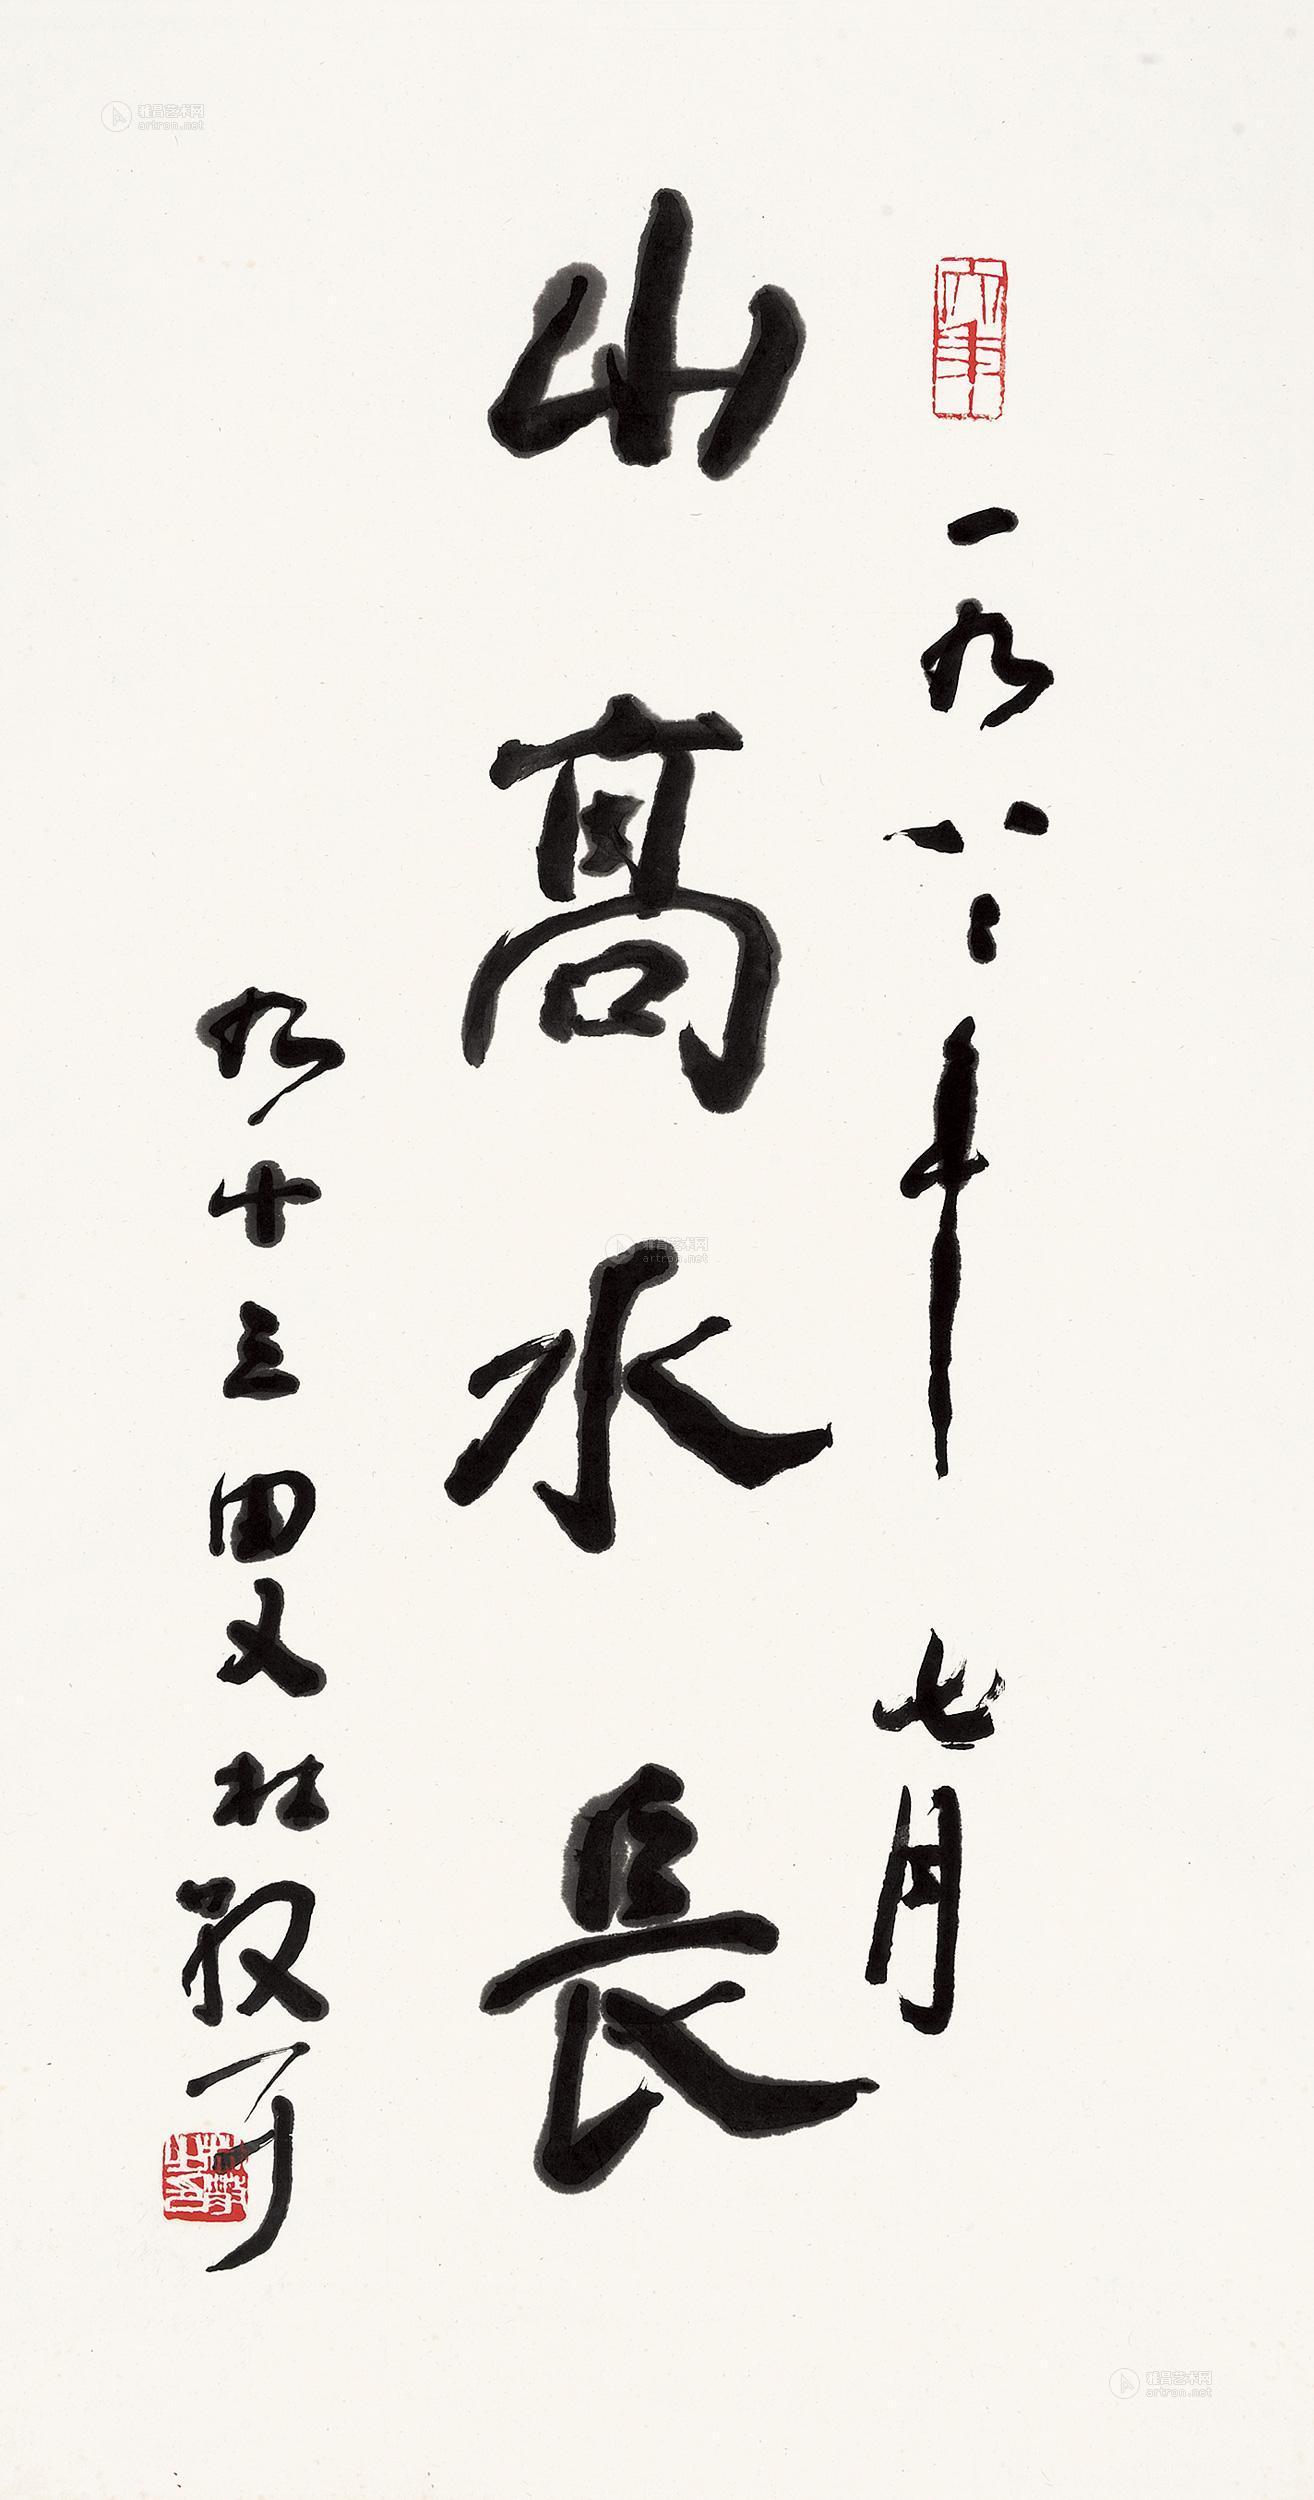 一九八八年七月
山高水長
九十三叟林散耳
林散之印
雅昌艺术网
artron.net
雅昌艺术网
artron.net
雅昌艺术网
artron.net